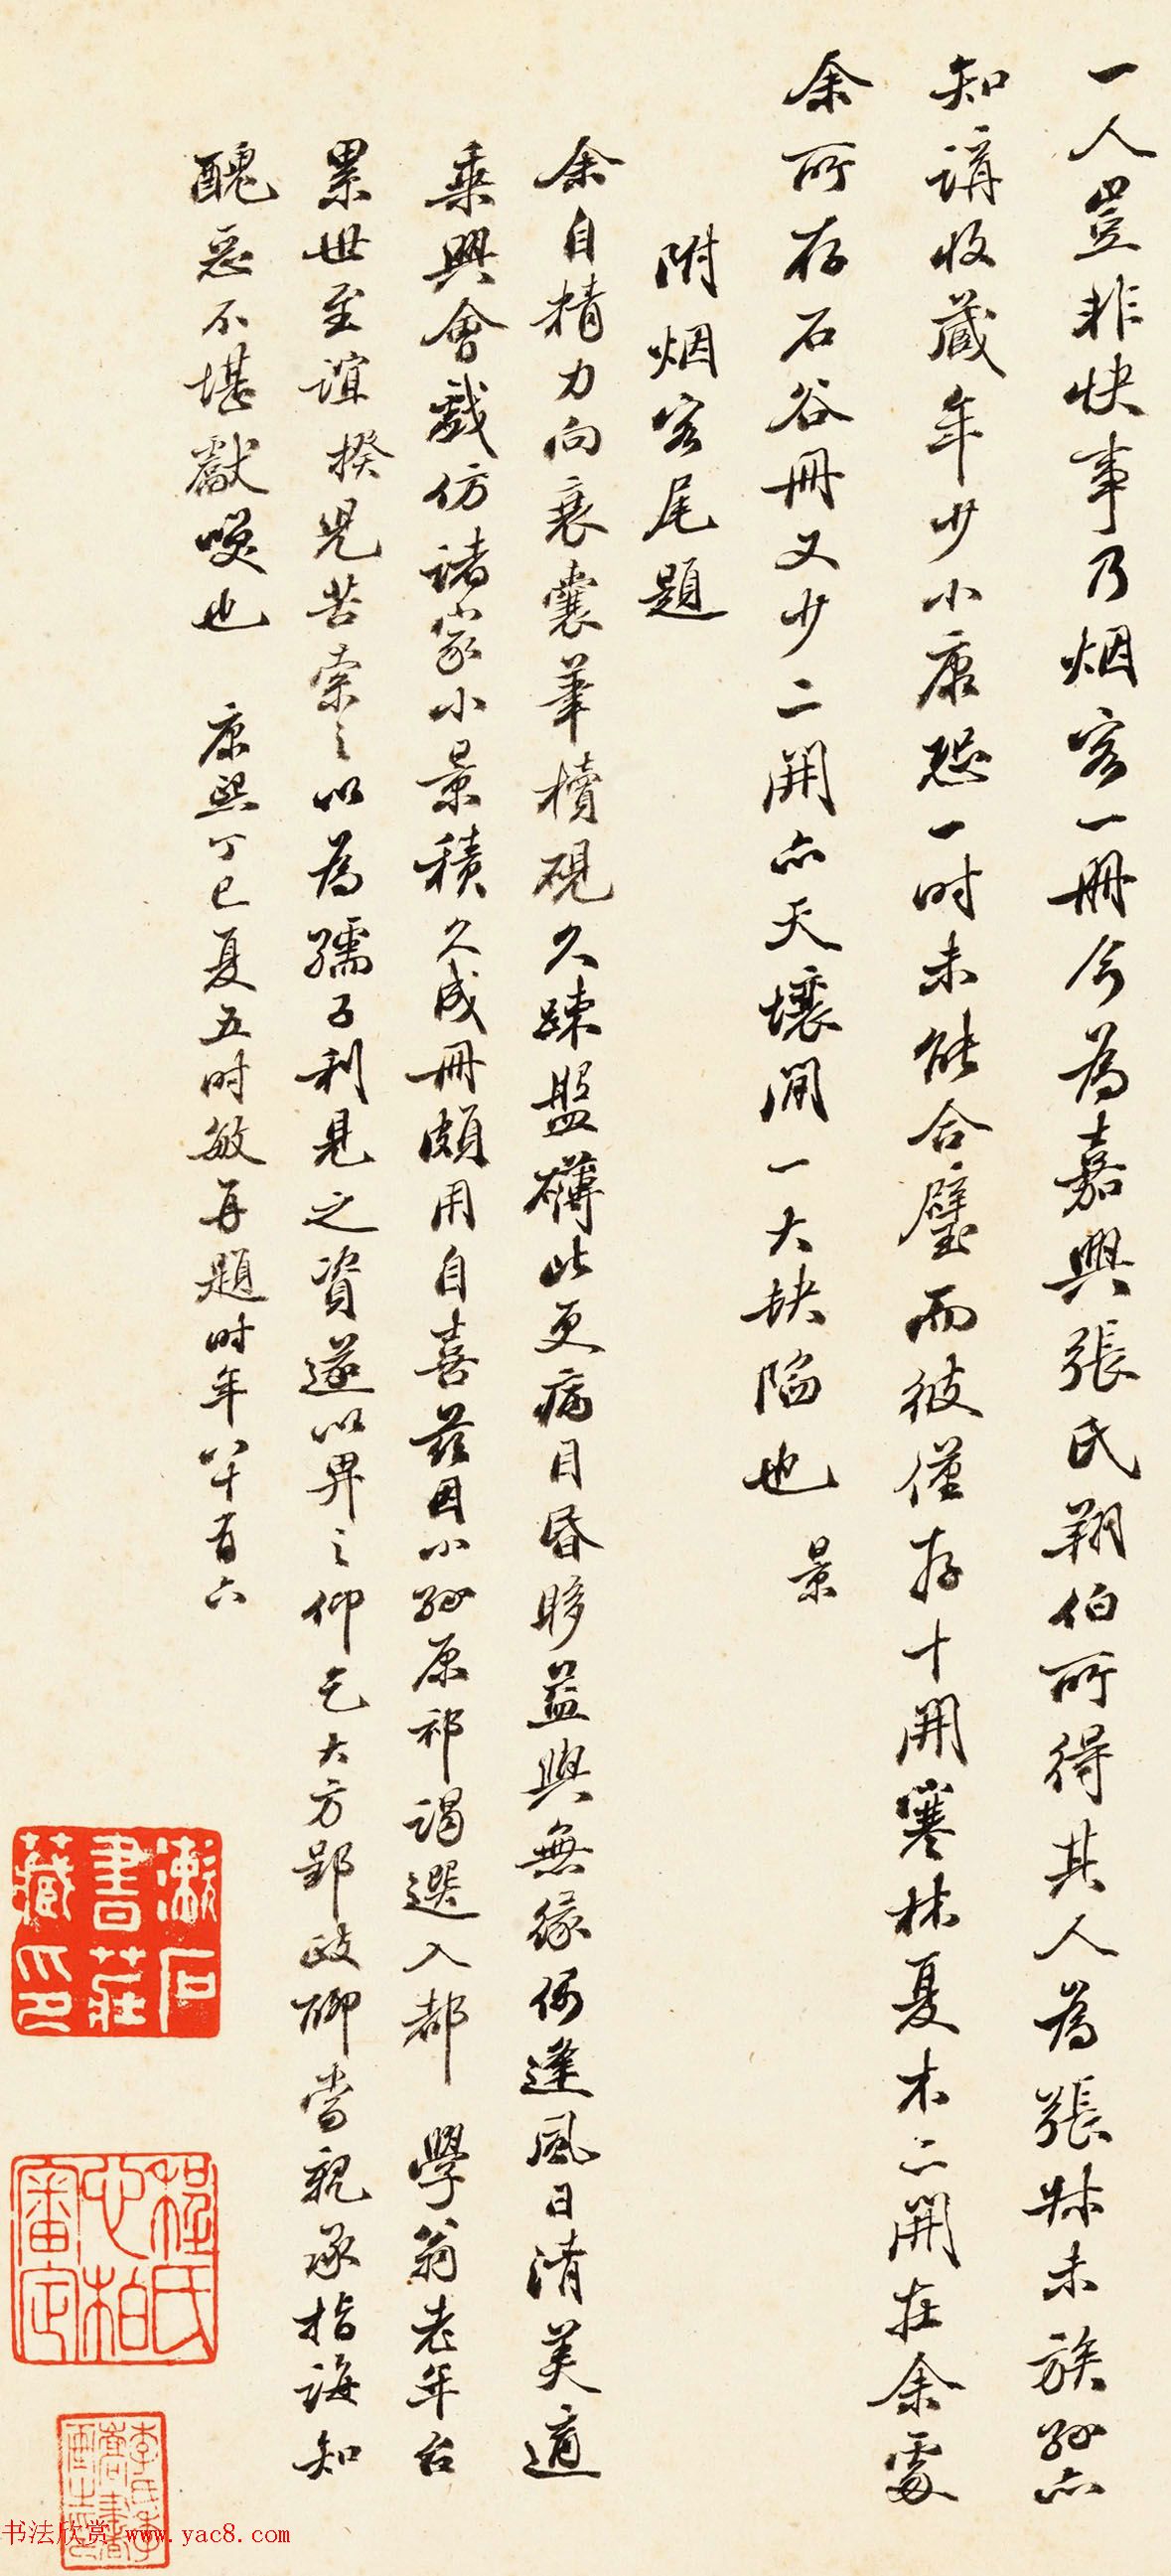 一人豈非快事乃烟客一冊今為嘉興張氏翔伯所得其人為張叔未族孫亦
知講收藏年少小康恐一时未能合璧而彼僅存十開寒林夏木二開在余處
余所存石谷冊又少二開亦天壤間一大缺陷也 景
附烟客尾題
余自精力向衰囊筆櫝硯久疎盤礴比更病目昏眵益與無緣偶逢風日清美適
乘興會戲仿諸家小景積久成冊頗用自喜茲因小孫原祁謁選入都 學翁老年台
累世至誼揆兒苦索之以為孺子利見之資遂以畀之仰乞大方郢政聊當親承指誨知
醜惡不堪獻嗤也 康熙丁巳夏五时敏再題时年八十有六
漱石
書莊
藏印
程氏
心柏
審定
书法欣赏 www.yac8.com